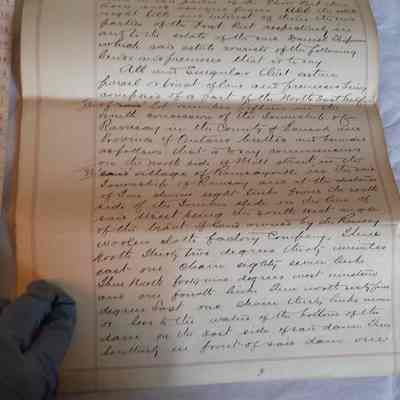 right title and interest of them the said
parties of the first part respectively in
and to the estate of the said Daniel Shipman
which said estate consists of the following
lands and premises that is to say
All and Singular that certain
parcel or tract of land and premises being
composed of a part of the North East half of
Lot number fifteen in the
ninth concession of the Township of
Ramsay in the County of Lanark and
Province of Ontario butted and bounded
as follows that is to say commencing
on the north side of Mill street in the
said village of Ramsayville in the said
Township of Ramsay and at the distance
of Two chains eight links from the south
side of the on the line of
said Street being the south west angle
of the tract of land owned by the Ramsay
Woolen Cloth Factory Company. Thence
North Thirty two degrees thirty minutes
east one Chain eighty seven links
Thence North forty nine degrees west nineteen
and one fourth links Thence north sixty five
degrees East one Chain thirty links more
or less to the waters of the bottom of the
dam on the east side of said dam Thence
Southerly in front of said dam one